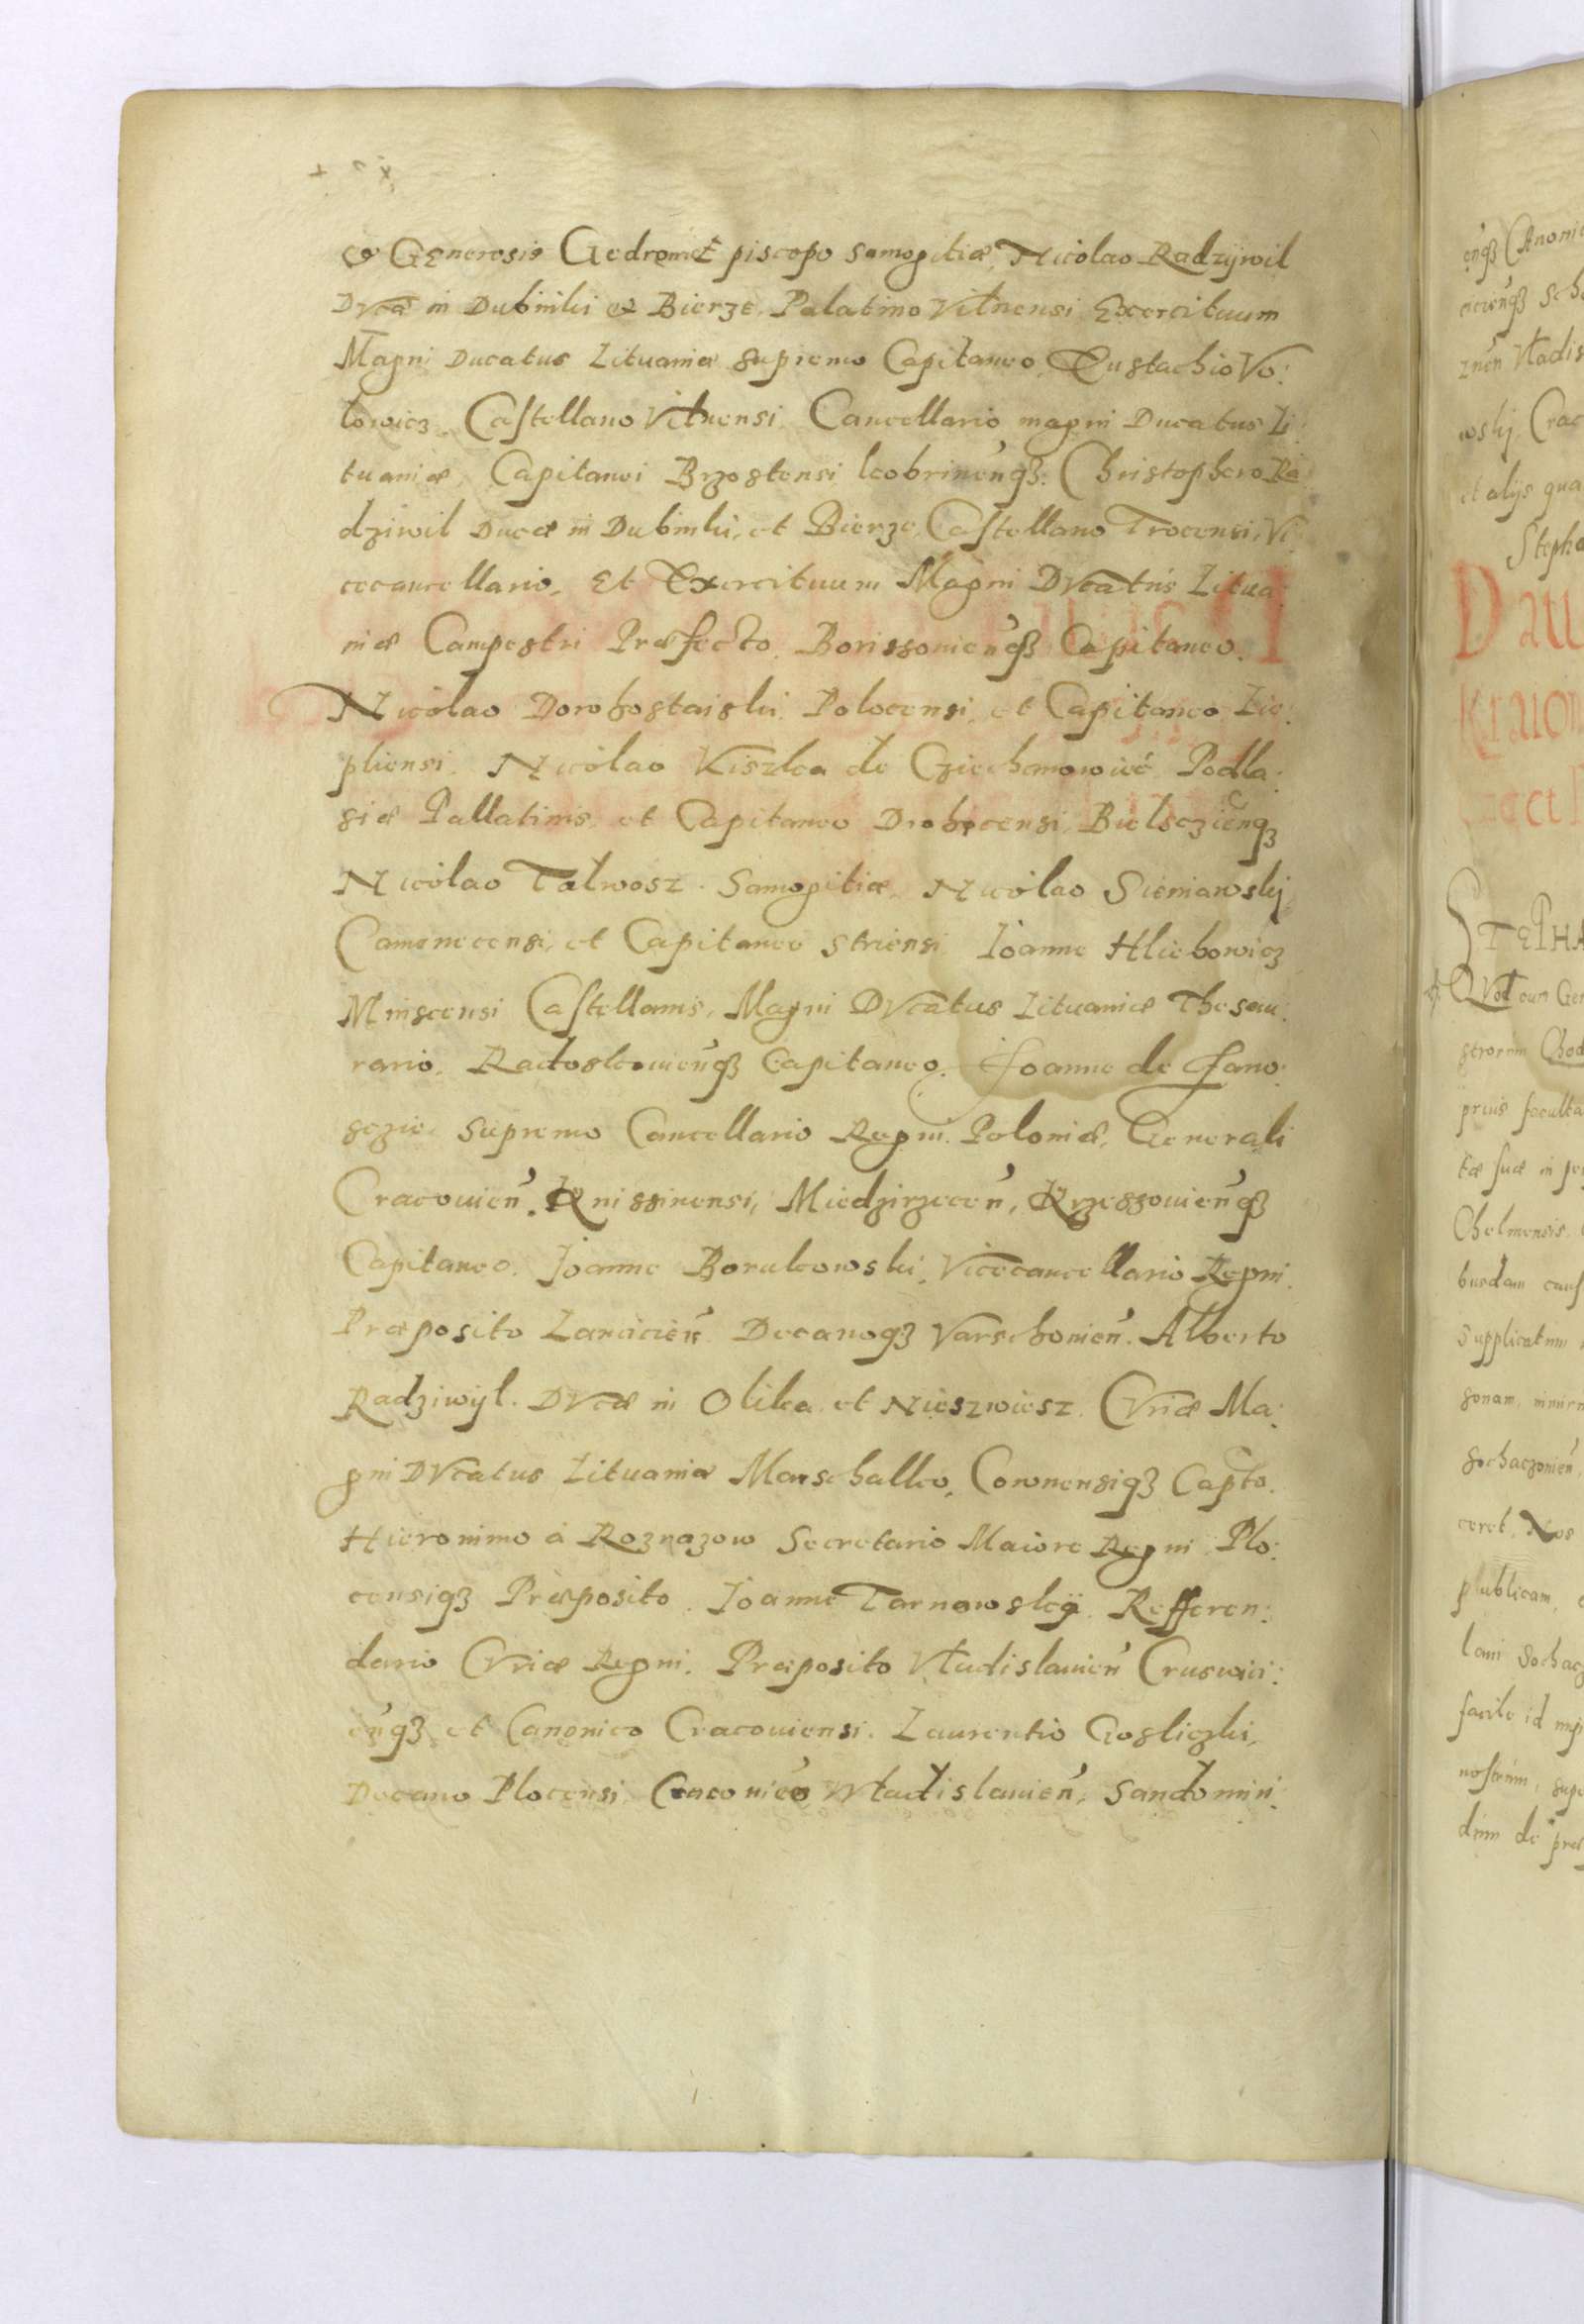 et Generosis Gedroniet Episcopo Samogitiæ, Nicolao Radzijwil
Ducæ in Dubinki et Bierze, Palatino Vilnensi Exercituum
Magni Ducatus Lituaniæ Supremo Capitaneo, Eustachio Vo:
lowicz, Castellano Vilnensi Cancellario magni Ducatus Li:
tuaniæ, Capitanei Brzostensi kobrinen̄qȝ. Christophero Ra:
dziwil Ducæ in Dubinki, et Bierze, Castellano Trocensi, Vi:
cecancellario, Et Exercituum Magni Ducatus Litua:
niæ Campestri Præfecto, Borissouien̄qȝ Capitaneo.
Nicolao Dorohostaiski Polocensi, et Capitaneo Lie:
pliensi. Nicolao Kiszka de Cziechanowicć Podla:
siæ Pallatinis, et Capitaneo Drohicensi, Bielsczien̄qȝ
Nicolao Talwosz. Samogitiæ, Nicolao Sieniawskij
Camenecensi, et Capitaneo Striensi Joanne Hliebowicz
Minscensi Castellanis, Magni Ducatus Lituaniæ Thesau:
rario, Radoskouien̄qȝ Capitaneo. Joanne de Zamo:
sczie Supremo Cancellario Regni Poloniæ, Generali
Cracouien̄. Knissinensi, Miedzirzecen̄, Krzessouien̄qȝ
Capitaneo. Joanne Borukowski, Vicecancellario Regni.
Præposito Lancicien̄. Decanoqȝ Varschouien̄. Alberto
Radziwijl. Ducæ in Olika et Nieszwiesz. Curiæ Ma:
gni Ducatus Lituaniæ Marschalko, Cownensiqȝ Capto.
Hieronimo à Roznazow Secretario Maiore Regni Plo:
censiqȝ Præposito. Joanne Tarnowskij. Refferen:
dario Curiæ Regni. Præposito Vladislauien̄ Cruswici:
en̄qȝ et Canonico Cracouiensi. Laurentio Gosliczki,
Decano Plocensi, Craconico Wladislauien̄, Sandomiri: